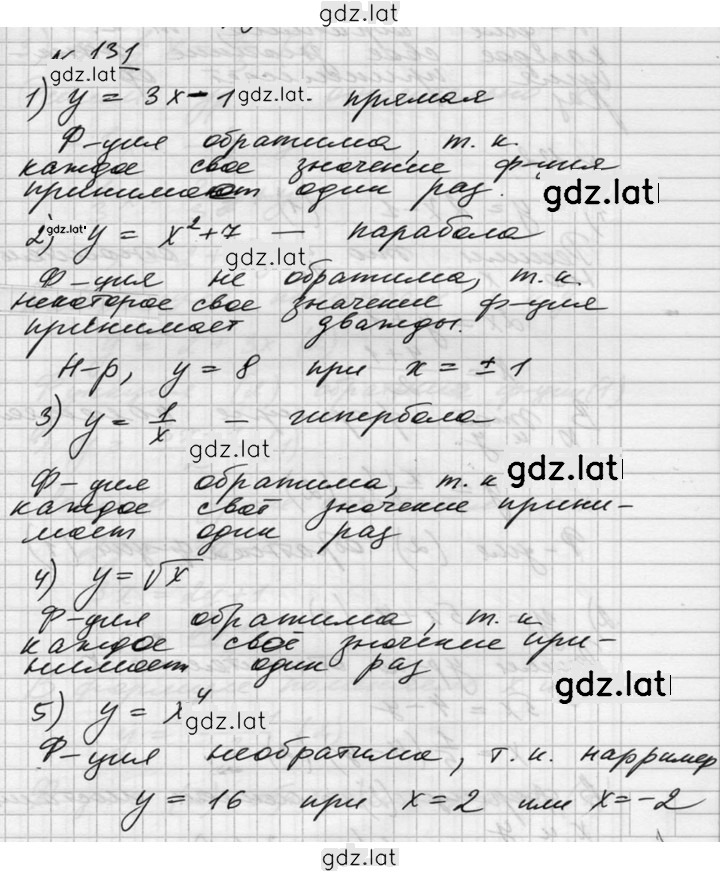 gdz.lat
№ 131
gdz.lat
1) y = 3x - 1 gdz.lat - прямая
Ф-ция обратима, т. к.
каждое свое значение ф-ция
принимает один раз.
gdz.lat
2) gdz.lat y = x² + 7 — парабола
gdz.lat
Ф-ция не обратима, т. к.
некоторое свое значение ф-ция
принимает дважды.
Н-р, y = 8 при x = ± 1
3) y = 1/x — гипербола
gdz.lat gdz.lat
Ф-ция обратима, т. к
каждое своё значение прини-
мает один раз
4) y = √x
Ф-ция обратима, т. к
каждое своё значение при-
нимает один раз
gdz.lat
5) y = x⁴
gdz.lat
Ф-ция необратима, т. к. нарример
y = 16 при x = 2 или x = -2
gdz.lat